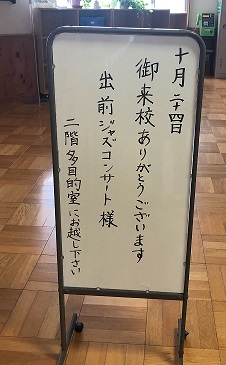 十月二十四日
御来校ありがとうございます
出前ジャズコンサート様
二階多目的室にお越し下さい